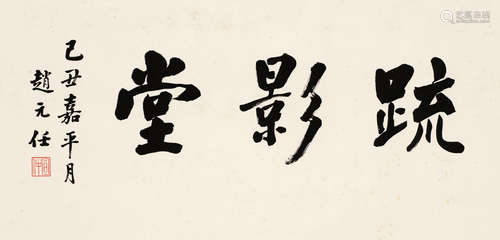 疏影堂
己丑嘉平月
趙元任